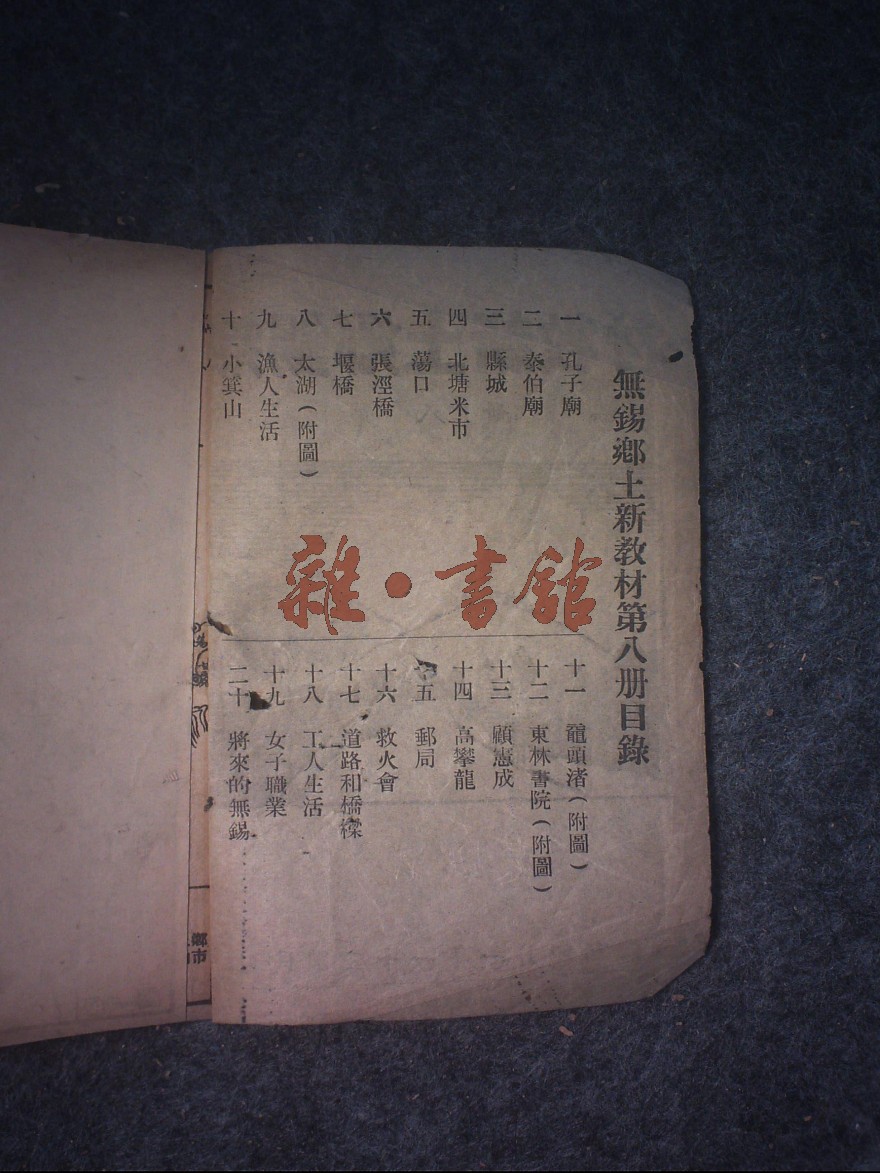 無錫鄉土新教材第八册目錄
一 孔子廟
二 泰伯廟
三 縣城
四 北塘米市
五 蕩口
六 張涇橋
七 堰橋
八 太湖(附圖)
九 漁人生活
十 小箕山
十一 黿頭渚(附圖)
十二 東林書院(附圖)
十三 顧憲成
十四 高攀龍
十五 郵局
十六 救火會
十七 道路和橋樑
十八 工人生活
十九 女子職業
二十 將來的無錫
雜·書館
鄉市